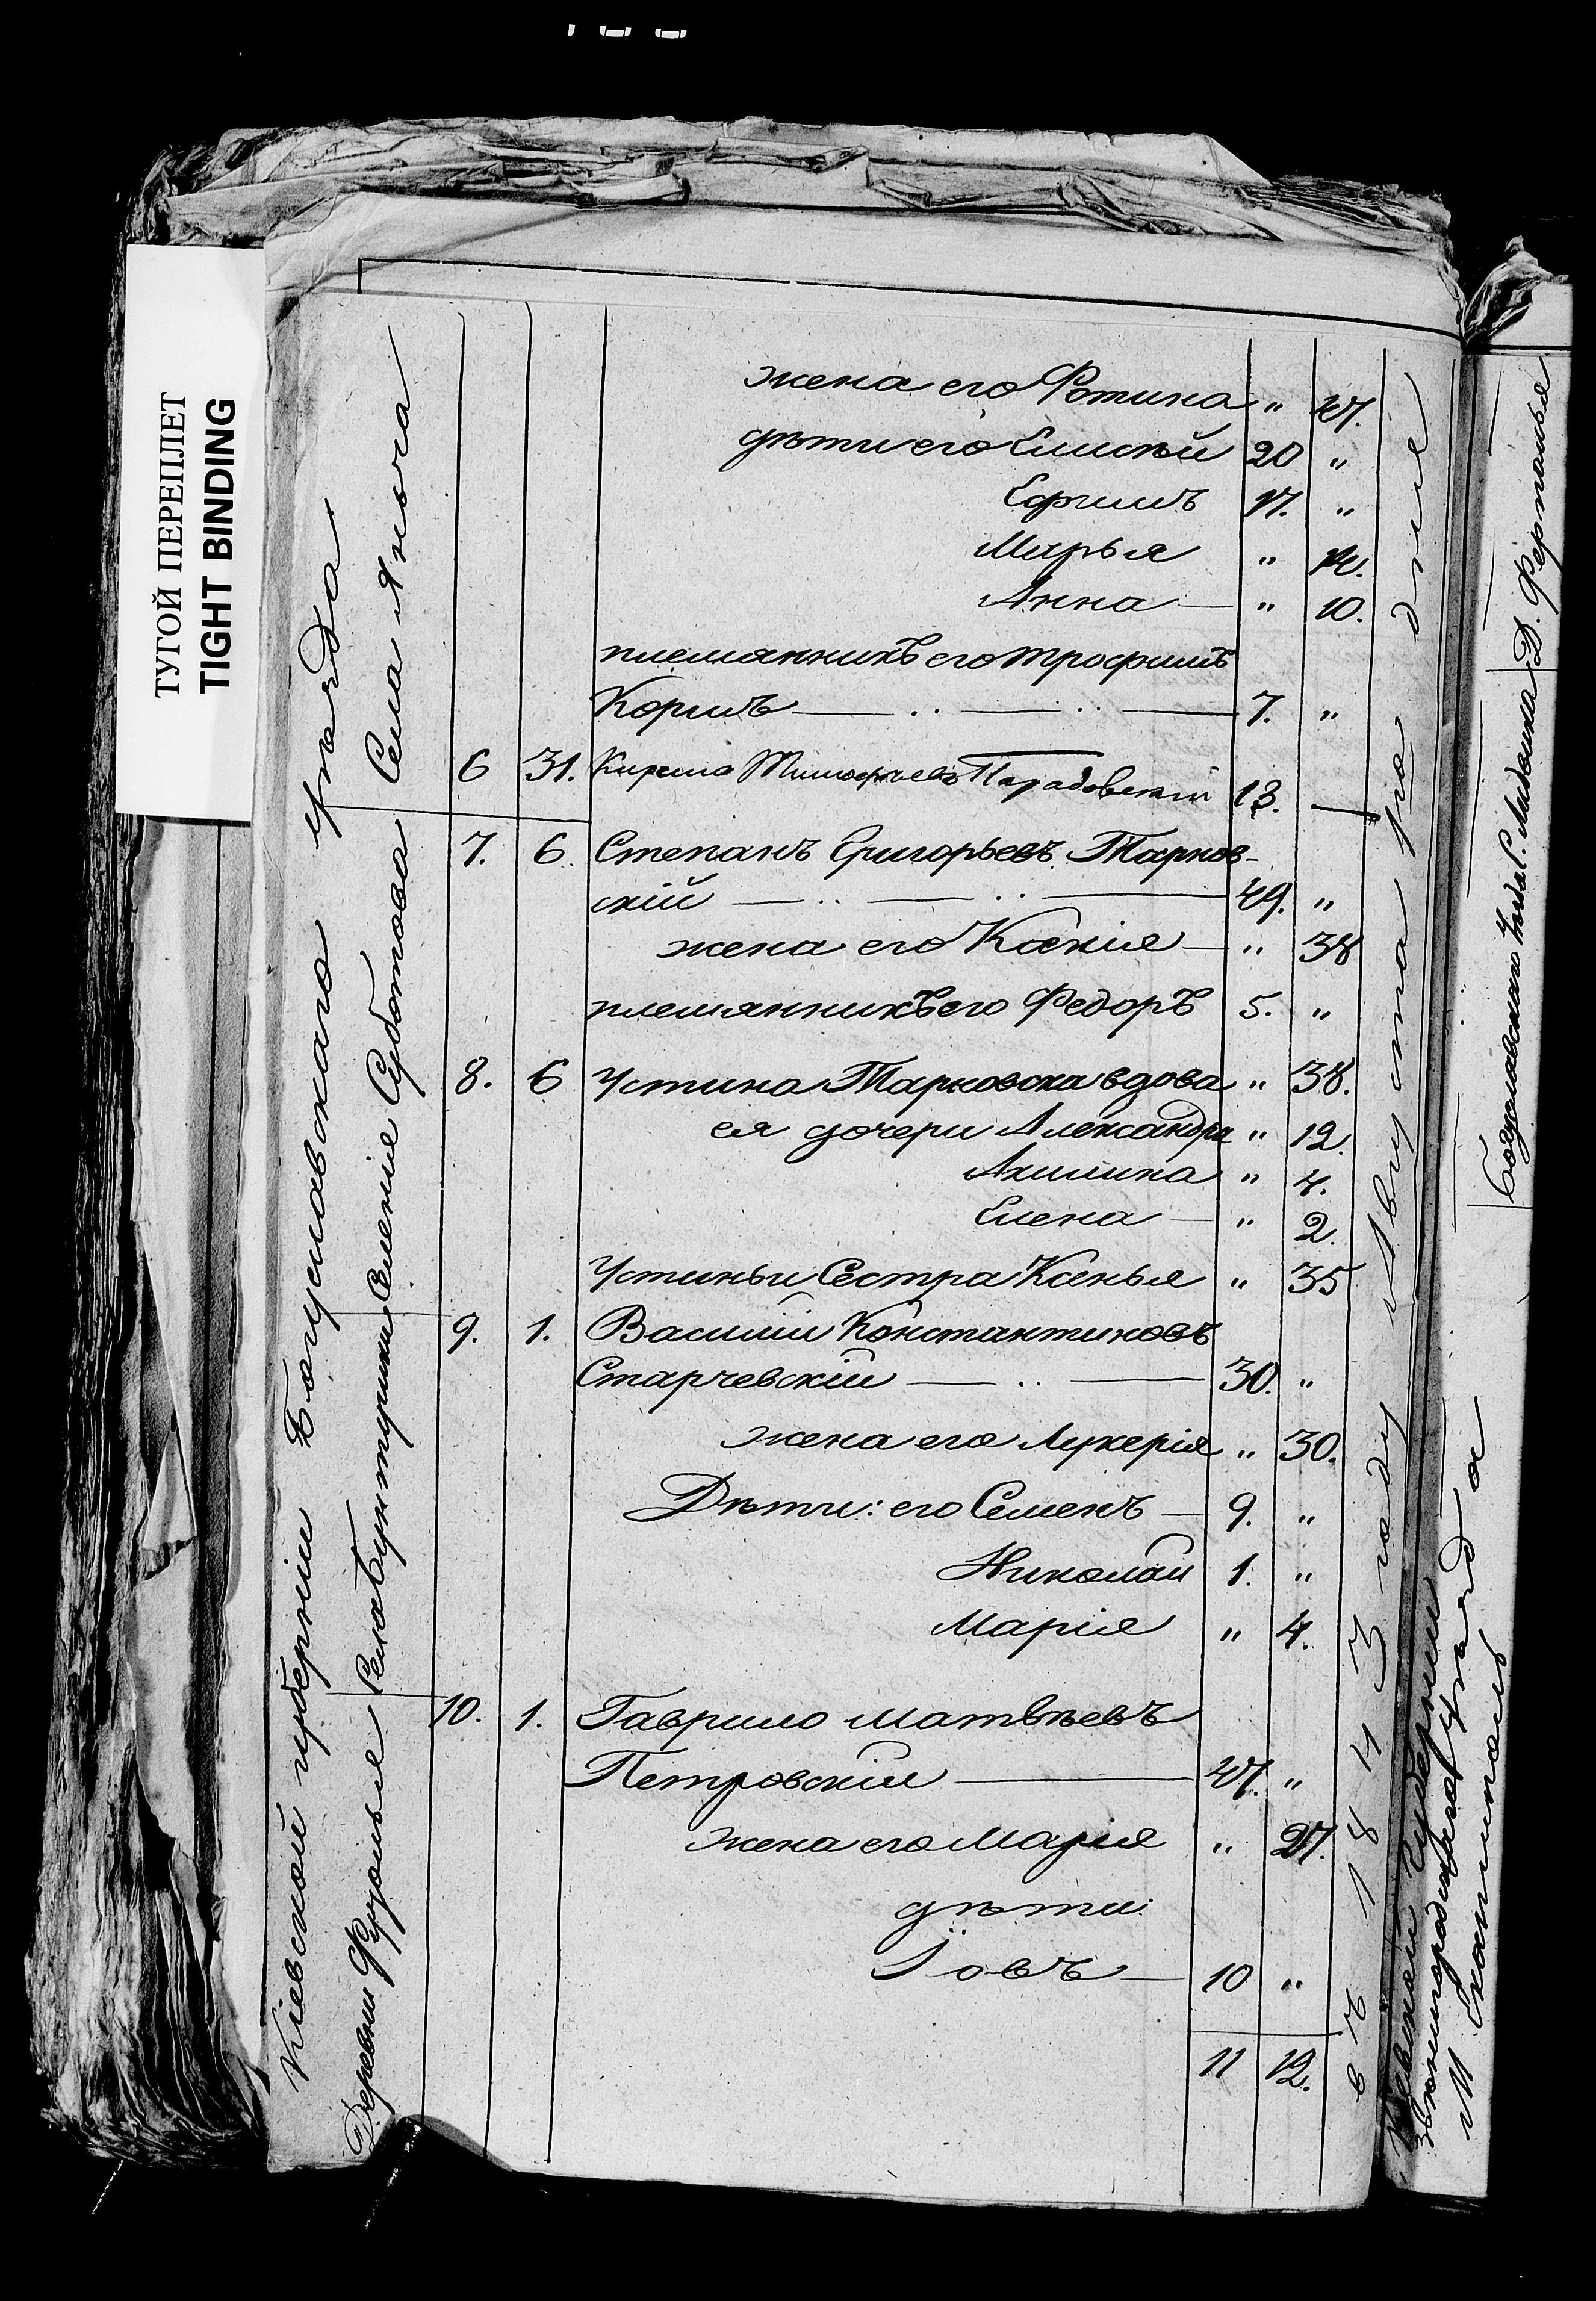 ТУГОЙ ПЕРЕПЛЕТ
TIGHT BINDING
Кіевской губерніи Богуславскаго уѣзда
Деревни Селеніе Суботова Села Яныча
жена его Фотина " 47.
дѣти его Елисѣй 20 "
Ефимъ 17. "
Марья " 14.
Анна — " 10.
племянникъ его Трофимъ
Коримъ — .. — .. — 7. "
6 31. Кирила Тимофѣевъ 13. —
7. 6. Степанъ Григорьевъ Тарнов-
скій — .. — .. — 49. "
жена его Ксенія — " 38
племянникъ его Федоръ 5. "
8. 6 Устина Тарновска вдова " 38.
ея дочери Александра " 12.
Акилина " 4.
Елена — " 2.
Устиньи Сестра Ксенья " 35
9. 1. Василій Константиновъ
Старчевскій — .. — 30. "
жена его Лукерія " 30.
Дѣти: его Семенъ — 9. "
Николай 1. "
Марія " 4.
10. 1. Гаврило Матвѣевъ
Петровскій — 47. "
жена его Марія " 27.
дѣти:
Іовъ — 10 "
11 12.
въ 1843 году Августа 1го дня
Кіевской губерніи
Звенигородскаго уѣзда